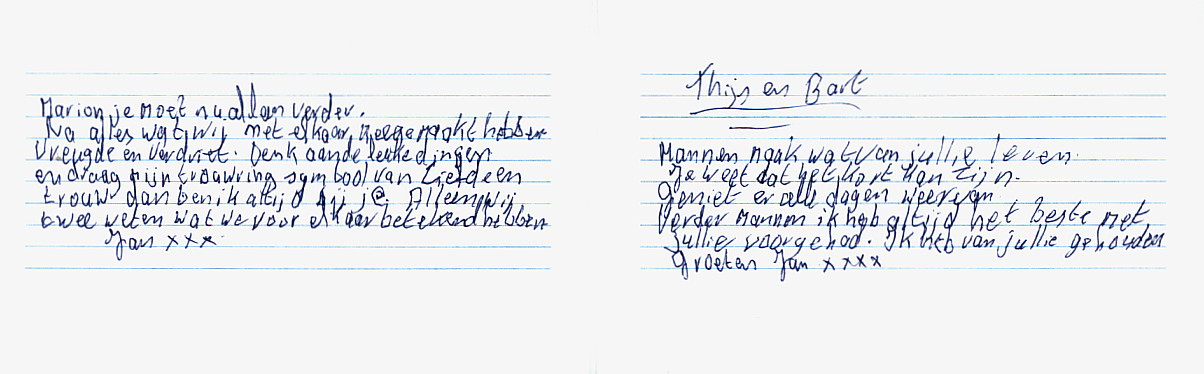 Marion je moet nu allen verder.
Na alles wat wij met elkaar meegemaakt hebben
Vreugde en verdriet. Denk aan de leuke dingen
en draag mijn trouwring symbool van liefde en
trouw dan ben ik altijd bij je. Alleen wij
twee weten wat we voor elkaar betekend hebben
Jan xxx.
Thijs en Bart
Mannen maak wat van jullie leven.
Je weet dat het kort kan zijn.
Geniet er alle dagen weer van
Verder mannen ik heb altijd het beste met
jullie voorgehad. Ik heb van jullie gehouden
Groeten Jan xxxx